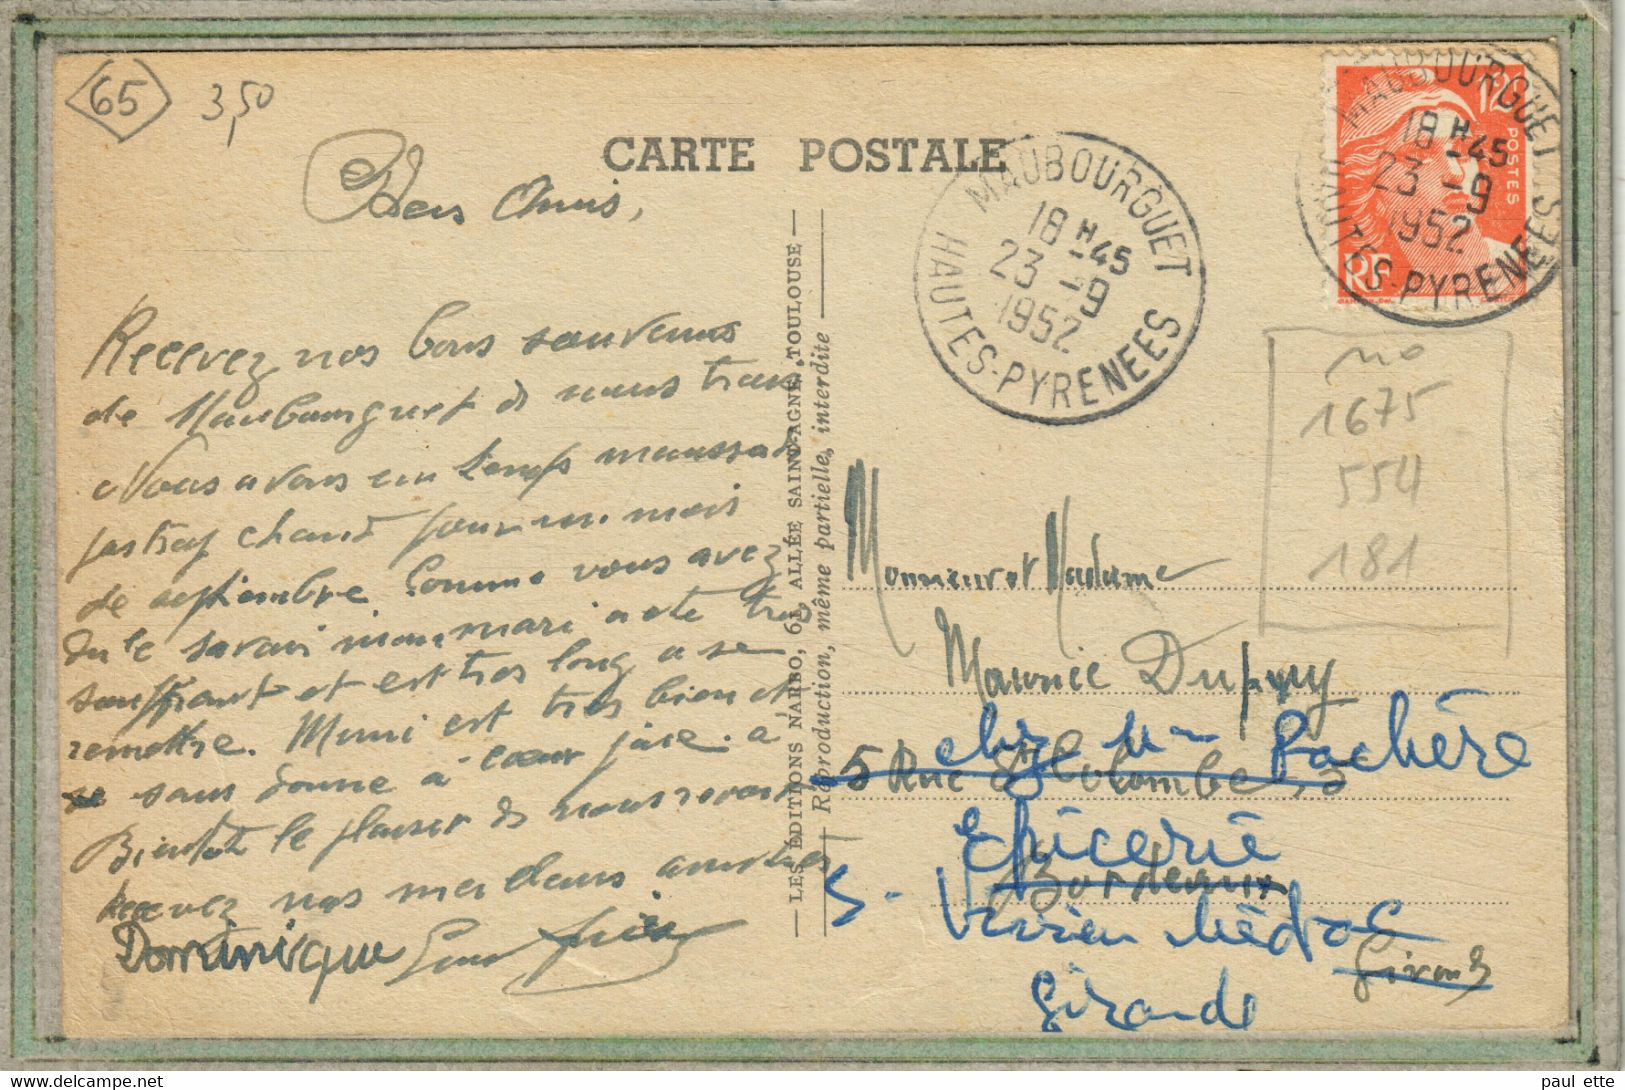 65
3,50
CARTE POSTALE
Chers Amis,
Recevez nos bons souvenirs
de Maubourguet où nous
Nous avons un temps maussade
pas trop chaud pour un mois
de septembre. Comme vous avez
du le savoir mon mari a été très
souffrant et est très long a se
remettre. Mimi est très bien et
se sans donne à cœur joie. a
Bientôt le plaisir de nous revoir
Recevez nos meilleurs amitiés
Dominique
LES ÉDITIONS NARBO, 61, ALLÉE SAINT-AGNE, TOULOUSE
Reproduction, même partielle, interdite
MAUBOURGUET
18 H 45
23 - 9
1952
HAUTES-PYRENEES
12F
POSTES
RF
MAUBOURGUET
18 H 45
23 - 9
1952
HAUTES-PYRENEES
no
1675
554
181
Monsieur et Madame
Maurice Dupuy
chez Mme Pachère
5 Rue Ste Colombe, 5
Epicerie
Bordeaux
S- Vivien Médoc
Gironde
Gironde
paul ette